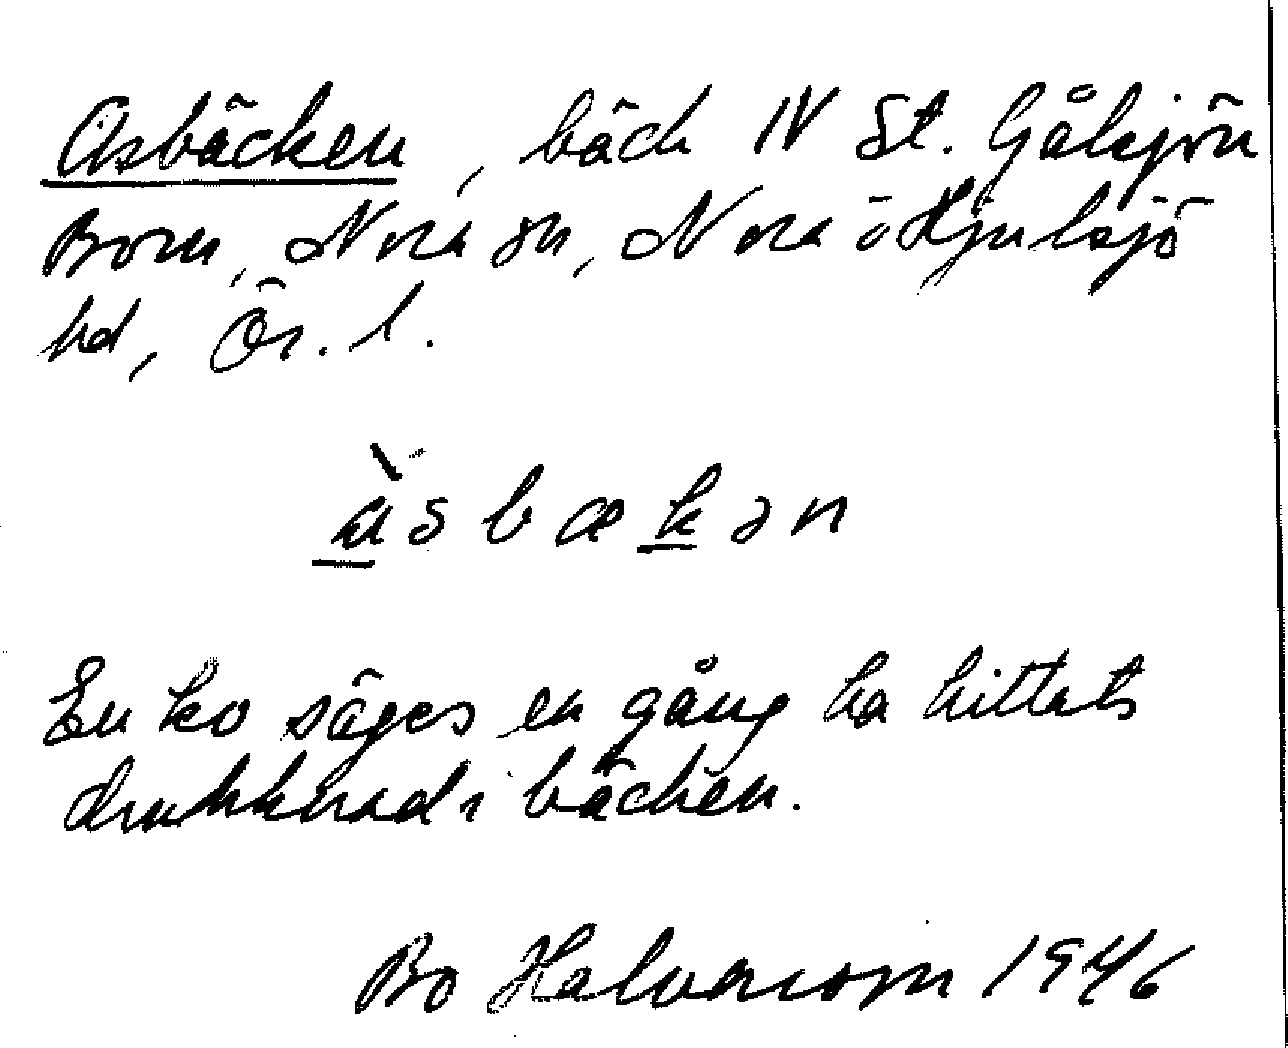 Asbäcken, bäck N St. Gåsjön
Born, Nora sn, Nora o Hjulsjö
hd, Ör. l.
àsbækən
En ko säges en gång ha hittats
drunknad i bäcken.
Bo Halvarson 1946